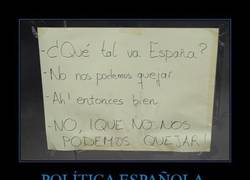 -¿Qué tal va España?
-No nos podemos quejar
-Ah! entonces bien
-NO, ¡QUE NO NOS
PODEMOS QUEJAR!
POLÍTICA ESPAÑOLA